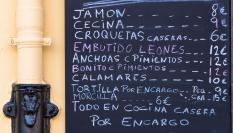 JAMON 8€
CECINA 9€
CROQUETAS CASERAS 6€
EMBUTIDO LEONES 12€
ANCHOAS C PIMIENTOS 12€
BONITO C PIMIENTOS 12€
CALAMARES 12€
TORTILLA POR ENCARGO 9€
MORCILLA 15€
TODO EN COCINA CASERA
POR ENCARGO